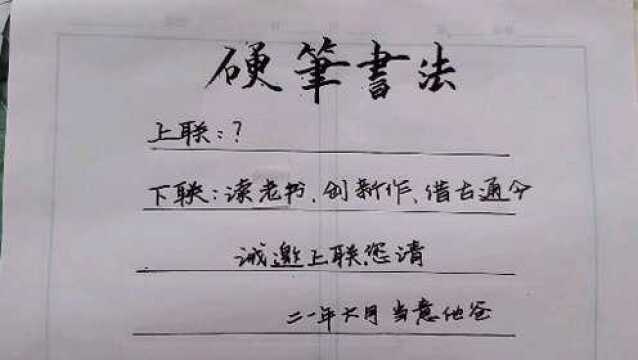 硬筆書法
上联:?
下联:读老书、创新作、借古通今
诚邀上联您请
二一年六月 当意他爸